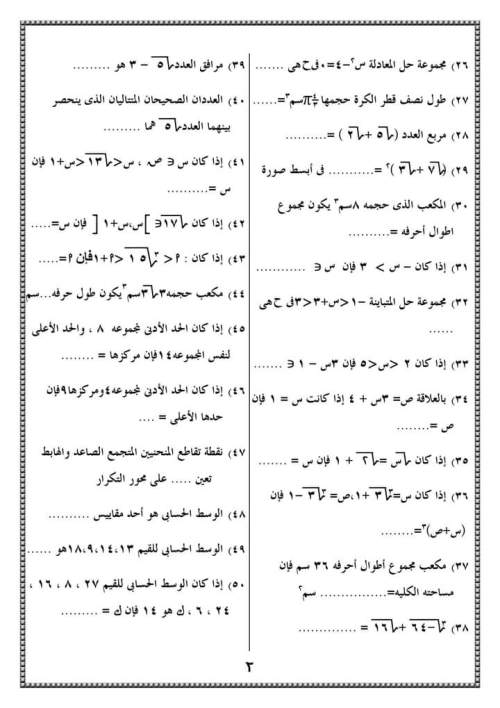 ٢٦) مجموعة حل المعادلة س٢−٤=٠ فى ح هى .......
٢٧) طول نصف قطر الكرة حجمها π سم٣=......
٢٨) مربع العدد (√٥ + √٢) =..........
٢٩) (√٧ + √٣)٢ =........... فى أبسط صورة
٣٠) المكعب الذى حجمه ٨سم٣ يكون مجموع
اطوال أحرفه =..........
٣١) إذا كان − س > ٣ فإن س ∋ ............
٣٢) مجموعة حل المتباينة −١<س+٣<٣ فى ح هى
......
٣٣) إذا كان ٢ <س<٥ فإن ٣س − ١ ∋ .......
٣٤) بالعلاقة ص= ٣س + ٤ إذا كانت س = ١ فإن
ص =........
٣٥) إذا كان √س =√٢ + ١ فإن س = .......
٣٦) إذا كان س=√٣+١،ص=√٣−١ فإن
(س+ص)٣=........
٣٧) مكعب مجموع أطوال أحرفه ٣٦ سم فإن
مساحته الكليه=................ سم٢
٣٨) ∛−٦٤ +√١٦ = ..............
٣٩) مرافق العدد √٥ − ٣ هو .........
٤٠) العددان الصحيحان المتتاليان الذى ينحصر
بينهما العدد √٥ هما .........
٤١) إذا كان س ∋ ص ، س<√١٣<س+١ فإن
س =..........
٤٢) إذا كان √١٧∋ ]س،س+١ [ فإن س=.....
٤٣) إذا كان : ٩ <∛١٥ <٩+١ فإن ٩=.....
٤٤) مكعب حجمه ٣√٣سم٣يكون طول حرفه...سم
٤٥) إذا كان الحد الأدنى لمجموعه ٨ ، والحد الأعلى
لنفس المجموعه ١٤ فإن مركزها = ........
٤٦) إذا كان الحد الأدنى لمجموعه٤ومركزها٩فإن
حدها الأعلى = ....
٤٧) نقطة تقاطع المنحنيين المتجمع الصاعد والهابط
تعين ..... على محور التكرار
٤٨) الوسط الحسابى هو أحد مقاييس ..........
٤٩) الوسط الحسابى للقيم ١٨،٩،١٤،١٣هو ......
٥٠) إذا كان الوسط الحسابى للقيم ٢٧ ، ٨ ، ١٦ ،
٢٤ ، ٦ ، ك هو ١٤ فإن ك = .........
٢